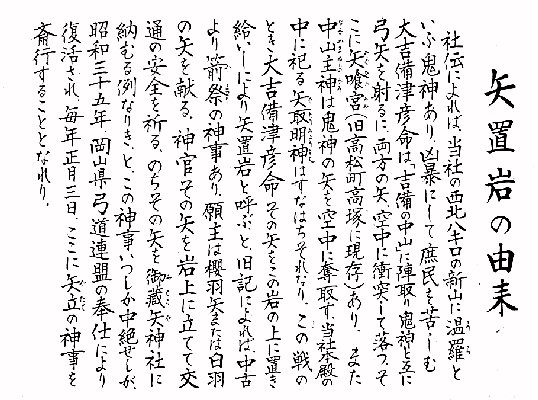 矢置岩の由来
社伝によれば、当社の西北八キロの新山に温羅と
いふ鬼神あり、凶暴にして庶民を苦しむ
大吉備津彦命は、吉備の中山に陣取り鬼神と互に
弓矢を射るに、両方の矢、空中に衝突して落つ、そ
こに矢喰宮(旧高松町高塚に現存)あり、また
中山主神は鬼神の矢を空中に奪取す、当社本殿の
中に祀る矢取明神はすなはちそれなり、この戦の
とき、大吉備津彦命、その矢をこの岩の上に置き
給いしにより、矢置岩と呼ぶと、旧記によれば中古
より箭祭の神事あり、願主は櫻羽矢または白羽
の矢を献る、神官その矢を岩上に立てて交
通の安全を祈る、のちその矢を御蔵矢神社に
納むる例なりき、と、この神事いつしか中絶せしが、
昭和三十五年、岡山県弓道連盟の奉仕により
復活され、毎年正月三日、ここに矢立の神事を
斎行することとなれり、